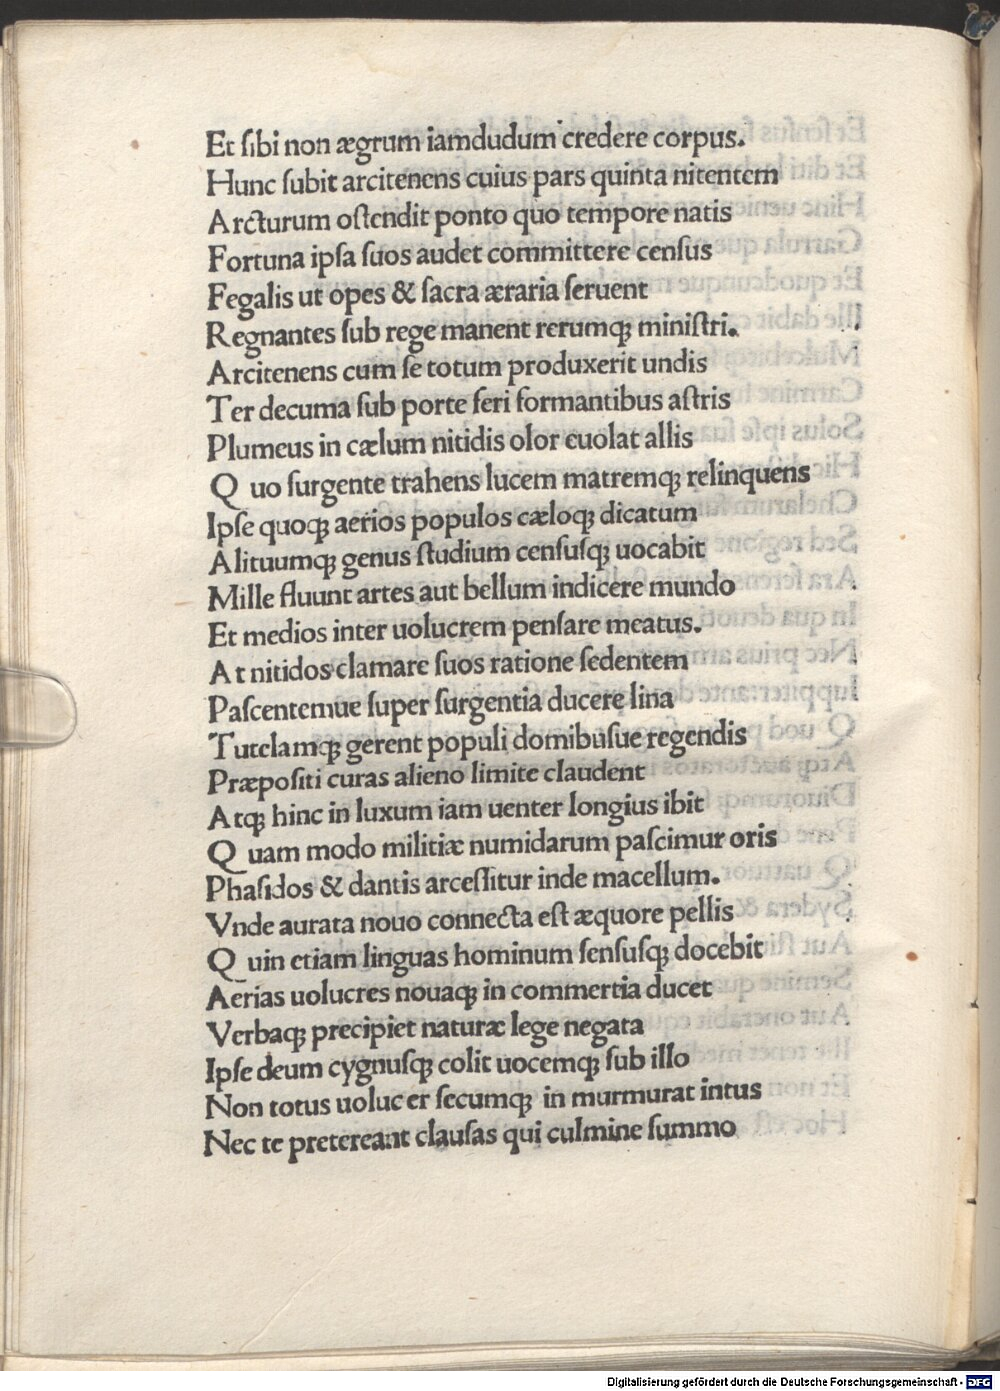 Et ſibi non ægrum iamdudum credere corpus.
Hunc ſubit arcitenens cuius pars quinta nitentem
Arcturum oſtendit ponto quo tempore natis
Fortuna ipſa ſuos audet committere cenſus
Fegalis ut opes & ſacra æraria ſeruent
Regnantes ſub rege manent rerumqꝫ miniſtri.
Arcitenens cum ſe totum produxerit undis
Ter decuma ſub porte feri formantibus aſtris
Plumeus in cælum nitidis olor euolat allis
Quo ſurgente trahens lucem matremqꝫ relinquens
Ipſe quoqꝫ aerios populos cæloqꝫ dicatum
Alituumqꝫ genus ſtudium cenſuſqꝫ uocabit
Mille fluunt artes aut bellum indicere mundo
Et medios inter uolucrem penſare meatus.
At nitidos clamare ſuos ratione ſedentem
Paſcentemue ſuper ſurgentia ducere lina
Tutelamqꝫ gerent populi domibuſue regendis
Præpoſiti curas alieno limite claudent
Atqꝫ hinc in luxum iam uenter longius ibit
Quam modo militiæ numidarum paſcimur oris
Phaſidos & dantis arceſſitur inde macellum.
Vnde aurata nouo connecta eſt æquore pellis
Quin etiam linguas hominum ſenſuſqꝫ docebit
Aerias uolucres nouaqꝫ in commertia ducet
Verbaqꝫ precipiet naturæ lege negata
Ipſe deum cygnuſqꝫ colit uocemqꝫ ſub illo
Non totus uolucer ſecumqꝫ in murmurat intus
Nec te pretereant clauſas qui culmine ſummo
Digitalisierung gefördert durch die Deutsche Forschungsgemeinschaft - DFG